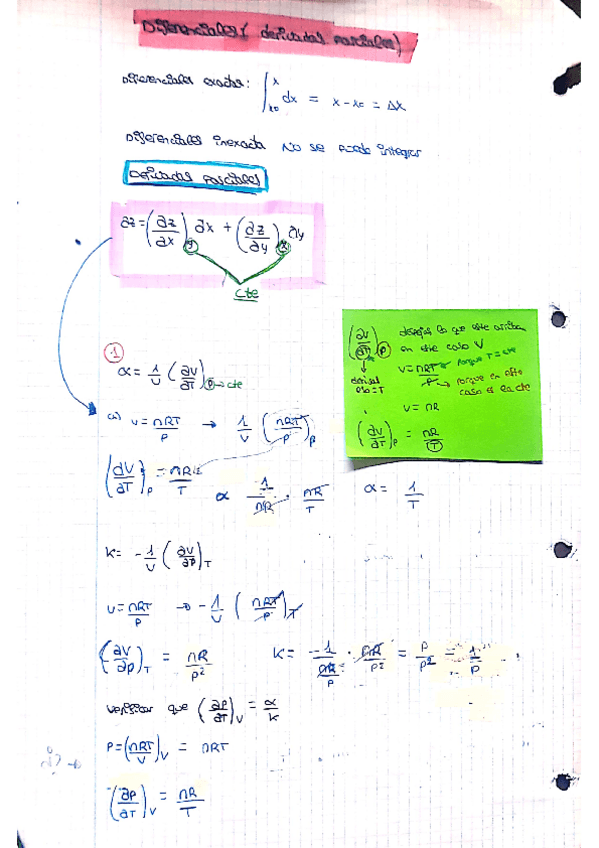 Diferenciales (derivadas parciales)
Diferenciales exactas: ∫ₓ₀ˣ dx = x - x₀ = Δx
Diferenciales inexacta No se puede integrar
Derivadas parciales
∂z = (∂z/∂x)y ∂x + (∂z/∂y)x ∂y
cte
1
α = 1/V (∂V/∂T)P → cte
a) V = nRT/P → 1/V (nRT/P)P
(dV/∂T)P = nR/T
α 1/nR · nR/T
α = 1/T
(∂V/∂T)P
despejas lo que este arriba
en este caso V
V = nRT/P
porque T = cte
porque en este
caso es la cte
V = nR
(∂V/∂T)P = nR/T
K = -1/V (∂V/∂P)T
V = nRT/P → -1/V (nRT/P)T
(∂V/∂P)T = nR/P²
K = -1/nR/P · nR/P² = P/P² = 1/P
Verificar que (∂P/∂T)V = α/K
P = (nRT/V)V = nRT
(∂P/∂T)V = nR/T